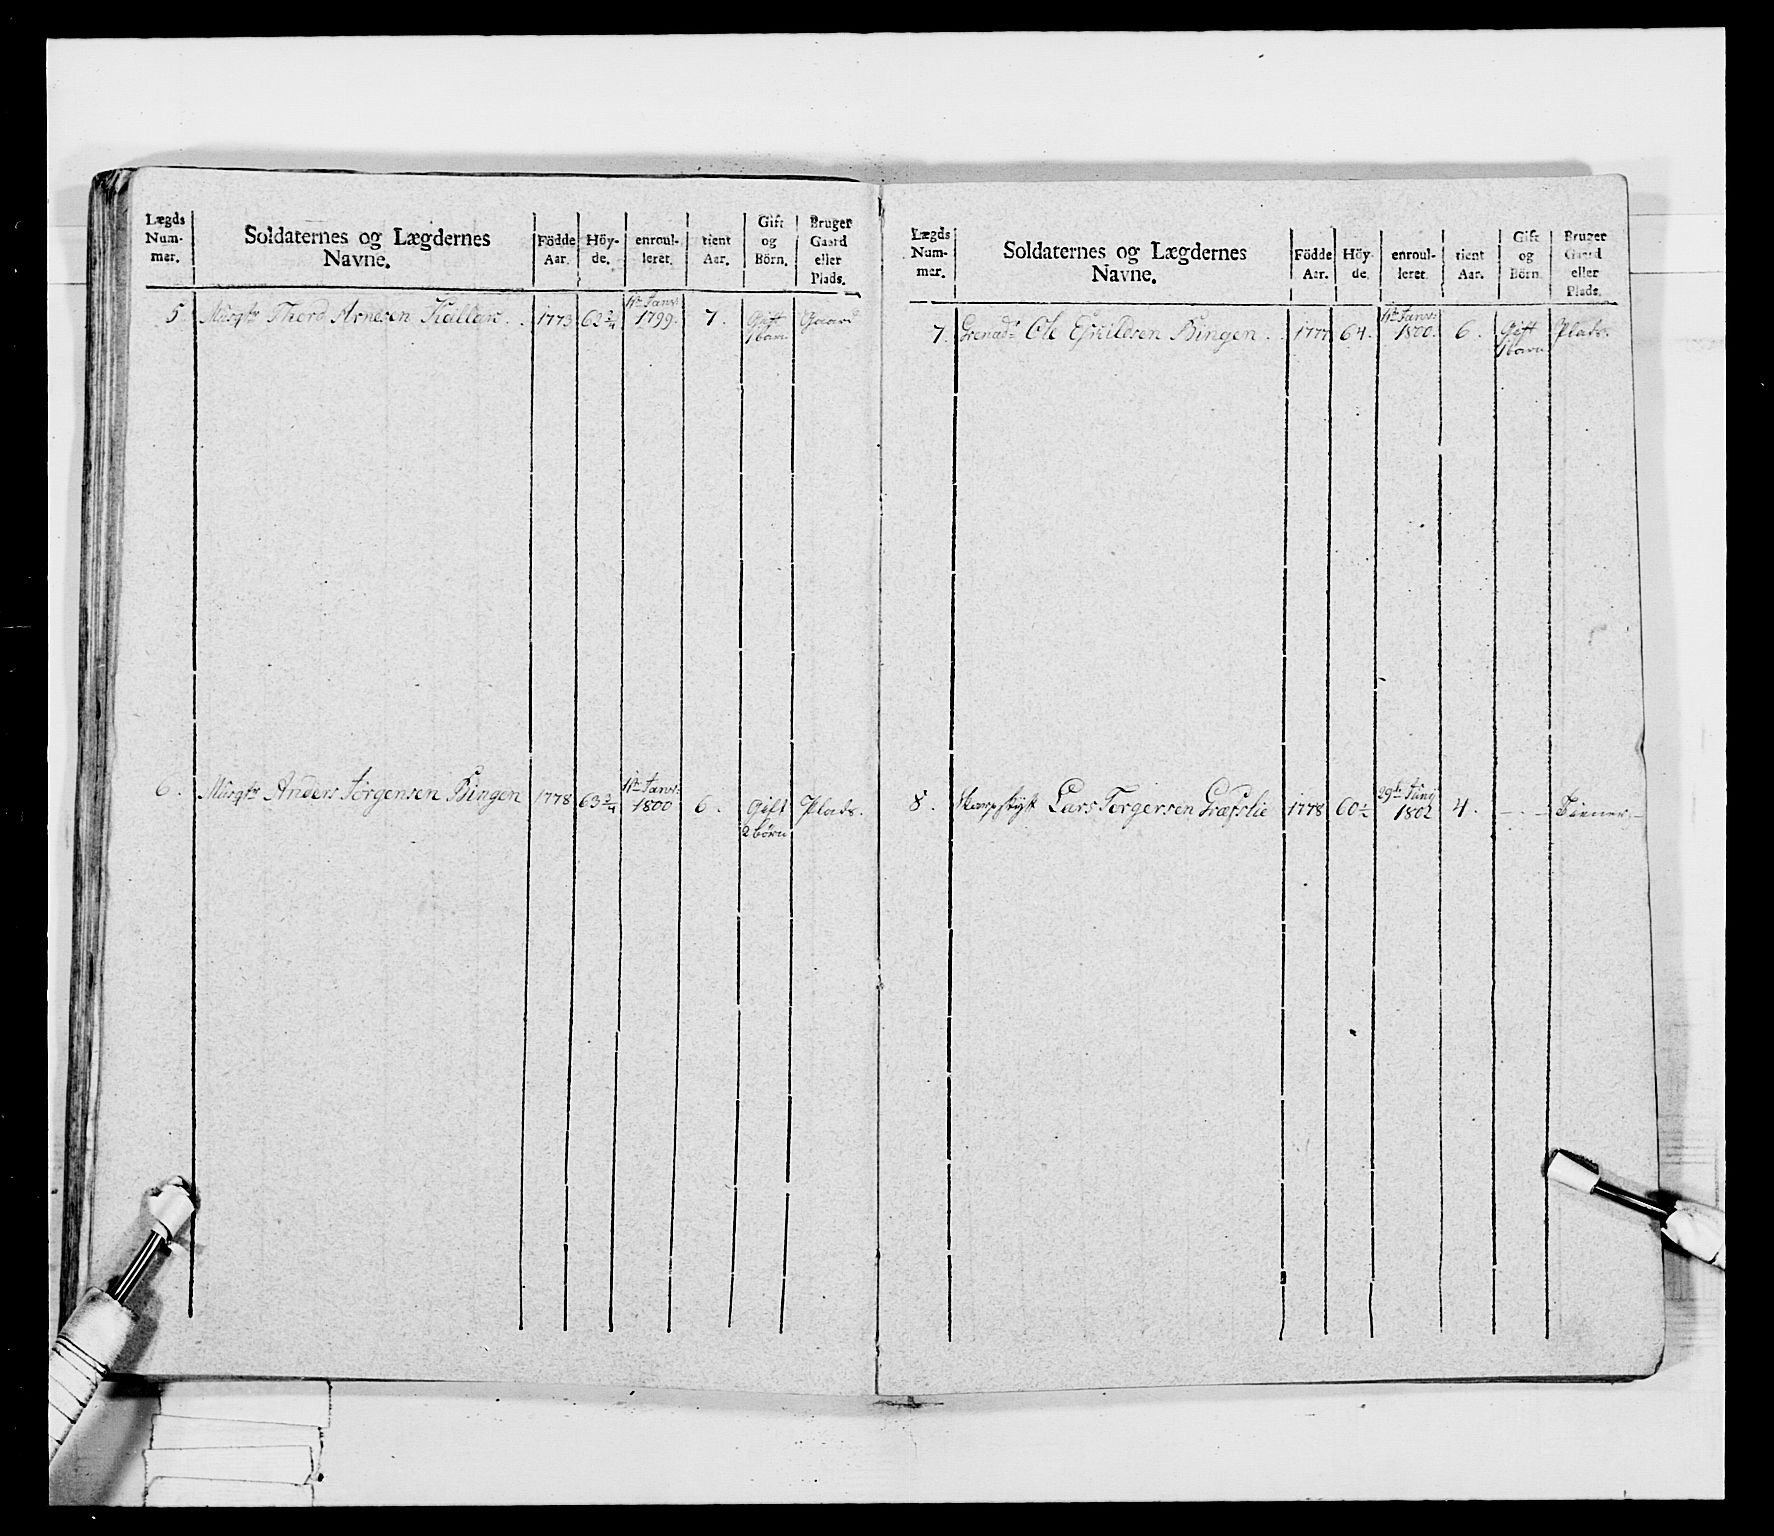 Lægds Num- mer. | Soldaternes og Lægdernes Navne. | Födde Aar. | Höy- de. | enroul- leret. | tient Aar. | Gift og Börn. | Bruger Gaard eller Plads.
5 Musqtr Thord Arnesen Kallan 1773 62 3/4 1te Janr: 1799. 7. Gift 1 barn Gaard
6. Musqtr Anders Jörgensen Bingen 1778 63 3/4 1te Janr: 1800 6. Gift 2 börn Plads.
Lægds Num- mer. | Soldaternes og Lægdernes Navne. | Födde Aar. | Höy- de. | enroul- leret. | tient Aar. | Gift og Börn. | Bruger Gaard eller Plads.
7. Grenadr Ole Eskildsen Bingen. 1777 64. 1te Janr: 1800. 6. Gift 1 barn Plads.
8. Skarpskyt Lars Torgersen 1778 60 1/2 29de Junij 1802 4. - . - Tiener. -